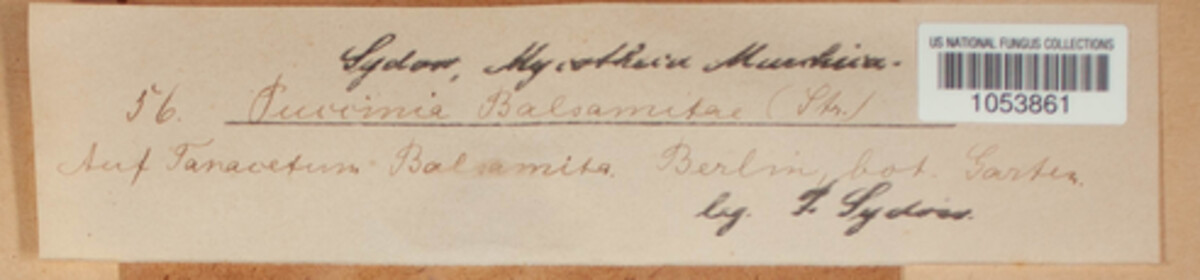 Sydow, Mycotheca Marchica.
US NATIONAL FUNGUS COLLECTIONS
1053861
56. Puccinia Balsamitae (Str.)
Auf Tanacetum Balsamita. Berlin, bot. Garten.
leg. P. Sydow.